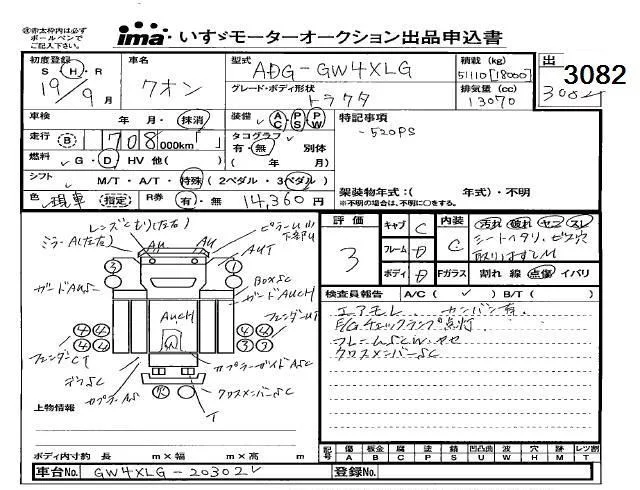 ㊟赤太枠内は必ず ボールペンで ご記入下さい。
ima いすゞモーターオークション出品申込書
出 3082
3082
初度登録 S・H・R 19/9月
車名 クオン
型式 ADG-GW4XLG
グレード・ボディ形状 トラクタ
積載(kg) 51110[18000]
排気量(cc) 13070
車検 年 月・抹消
装備 AC・PS・PW
特記事項
-520PS
走行 B 708,000km
タコグラフ 有・無 別体
( 年 月)
燃料 G・D HV 他( )
シフト M/T・A/T・特殊(2ペダル・3ペダル)
色 現車 指定 R券 有・無 14,360円
架装物年式:( 年式)・不明
※不明の場合は、不明に○をする。
レンズくもり(左右)
ミラーA(左右)
AU AU
ピラーUU
下部U
AUT
3 1
ガードAUSC
BOXSC
ガードAUCH
フェンダーUT
AUCH
4 4 3
4 4 3
フェンダーCT
カプラーガイドASC
クロスメンバーSC
T
上物情報
ボディ内寸約 長 m×幅 m×高 m
評価 3
キャブ C
フレーム
ボディ
内装 C
汚れ 破れ ヤニ スレ
シートヘタリ、ビス穴
取りはずしM
Fガラス 割れ 線 点傷 イバリ
検査員報告 A/C( ✓ ) B/T( )
エアモレ カンバン有
E/Gチェックランプ点灯
フレームSCW、ヤセ
クロスメンバーSC
記号 傷 板金 腐 塗 錆 凹凸曲 波 穴 跡 レツ割
A B C P S U W H M T
車台No. GW4XLG-20302
登録No.